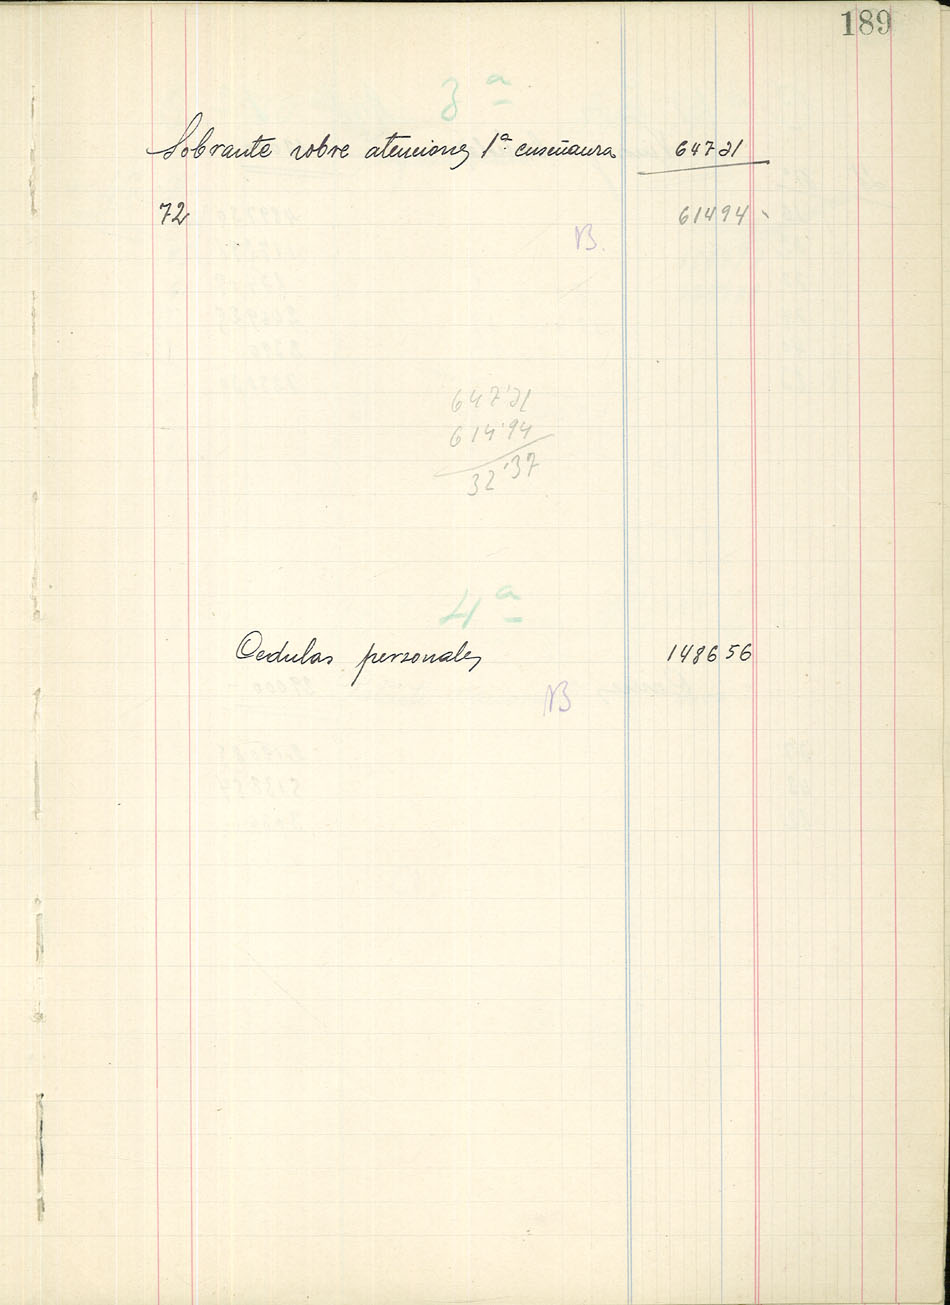 189
3ª
Sobrante sobre atenciones 1ª enseñanza 647 21
72 614 94
B.
647'21
614'94
32'37
4ª
Cedulas personales 1486 56
B